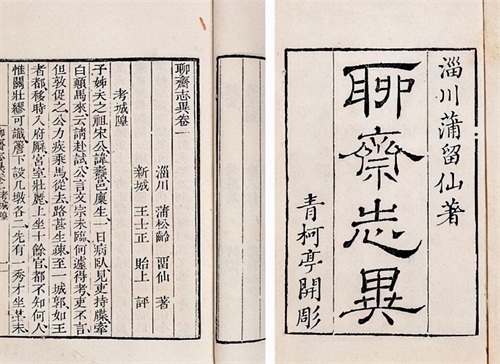 淄川蒲留仙著
聊齋志異
青柯亭開彫
聊齋志異卷一
淄川 蒲松齡 畱仙 著
新城 王士正 貽上 評
考城隍
子姊夫之祖宋公諱燾邑廩生一日病臥見吏持牒牽
白顛馬來云請赴試公言文宗未臨何遽得考吏不言
但敦促之公力疾乘馬從去路甚生疎至一城郭如王
者都移時入府廨宮室壯麗上坐十餘官都不知何人
惟關壯繆可識簷下設几墩各二先有一秀才坐其末